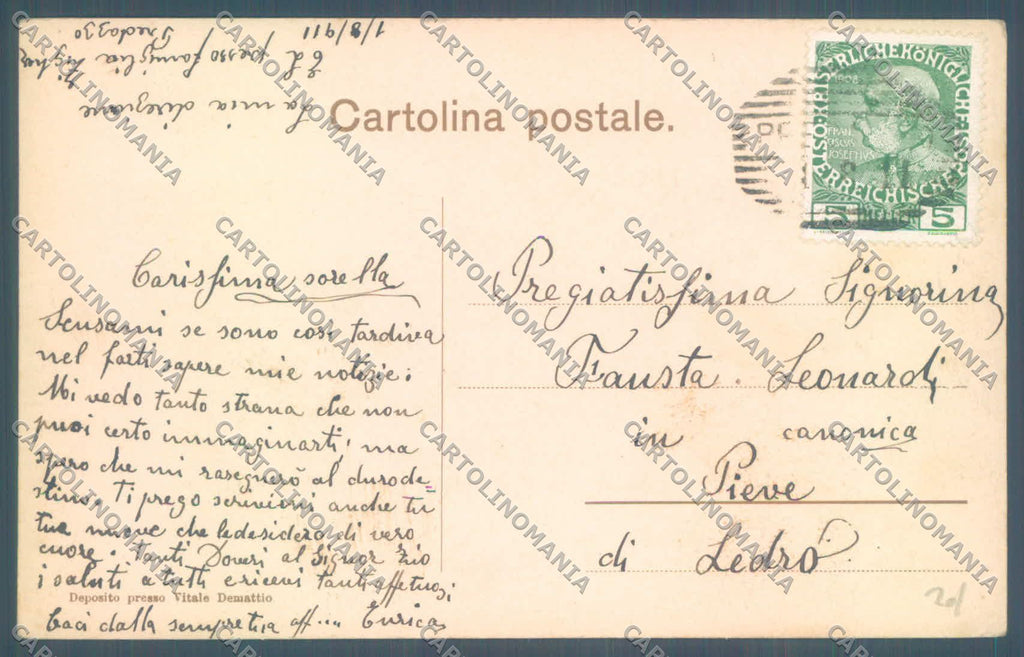 1/8/911
Predazzo
presso famiglia
La mia direzione
Cartolina postale.
1908
FRAN
CISCVS
IOSEPHVS
KAISERLICHE KÖNIGLICHE
ÖSTERREICHISCHE POST
5 HELLER 5
Carissima sorella
Scusami se sono così tardiva
nel farti sapere mie notizie:
Mi vedo tanto strana che non
puoi certo immaginarti, ma
spero che mi rasegnerò al duro de=
stino. Ti prego scrivimi anche tu
tue nuove che le desidero di vero
cuore. Tanti Doveri al Signor Zio
i saluti a tutti e ricevi tanti affetuosi
Baci dalla sempre tua aff... Enrica
Deposito presso Vitale Demattio
Pregiatissima Signorina
Fausta Leonardi
in canonica
Pieve
di Ledro
CARTOLINOMANIA